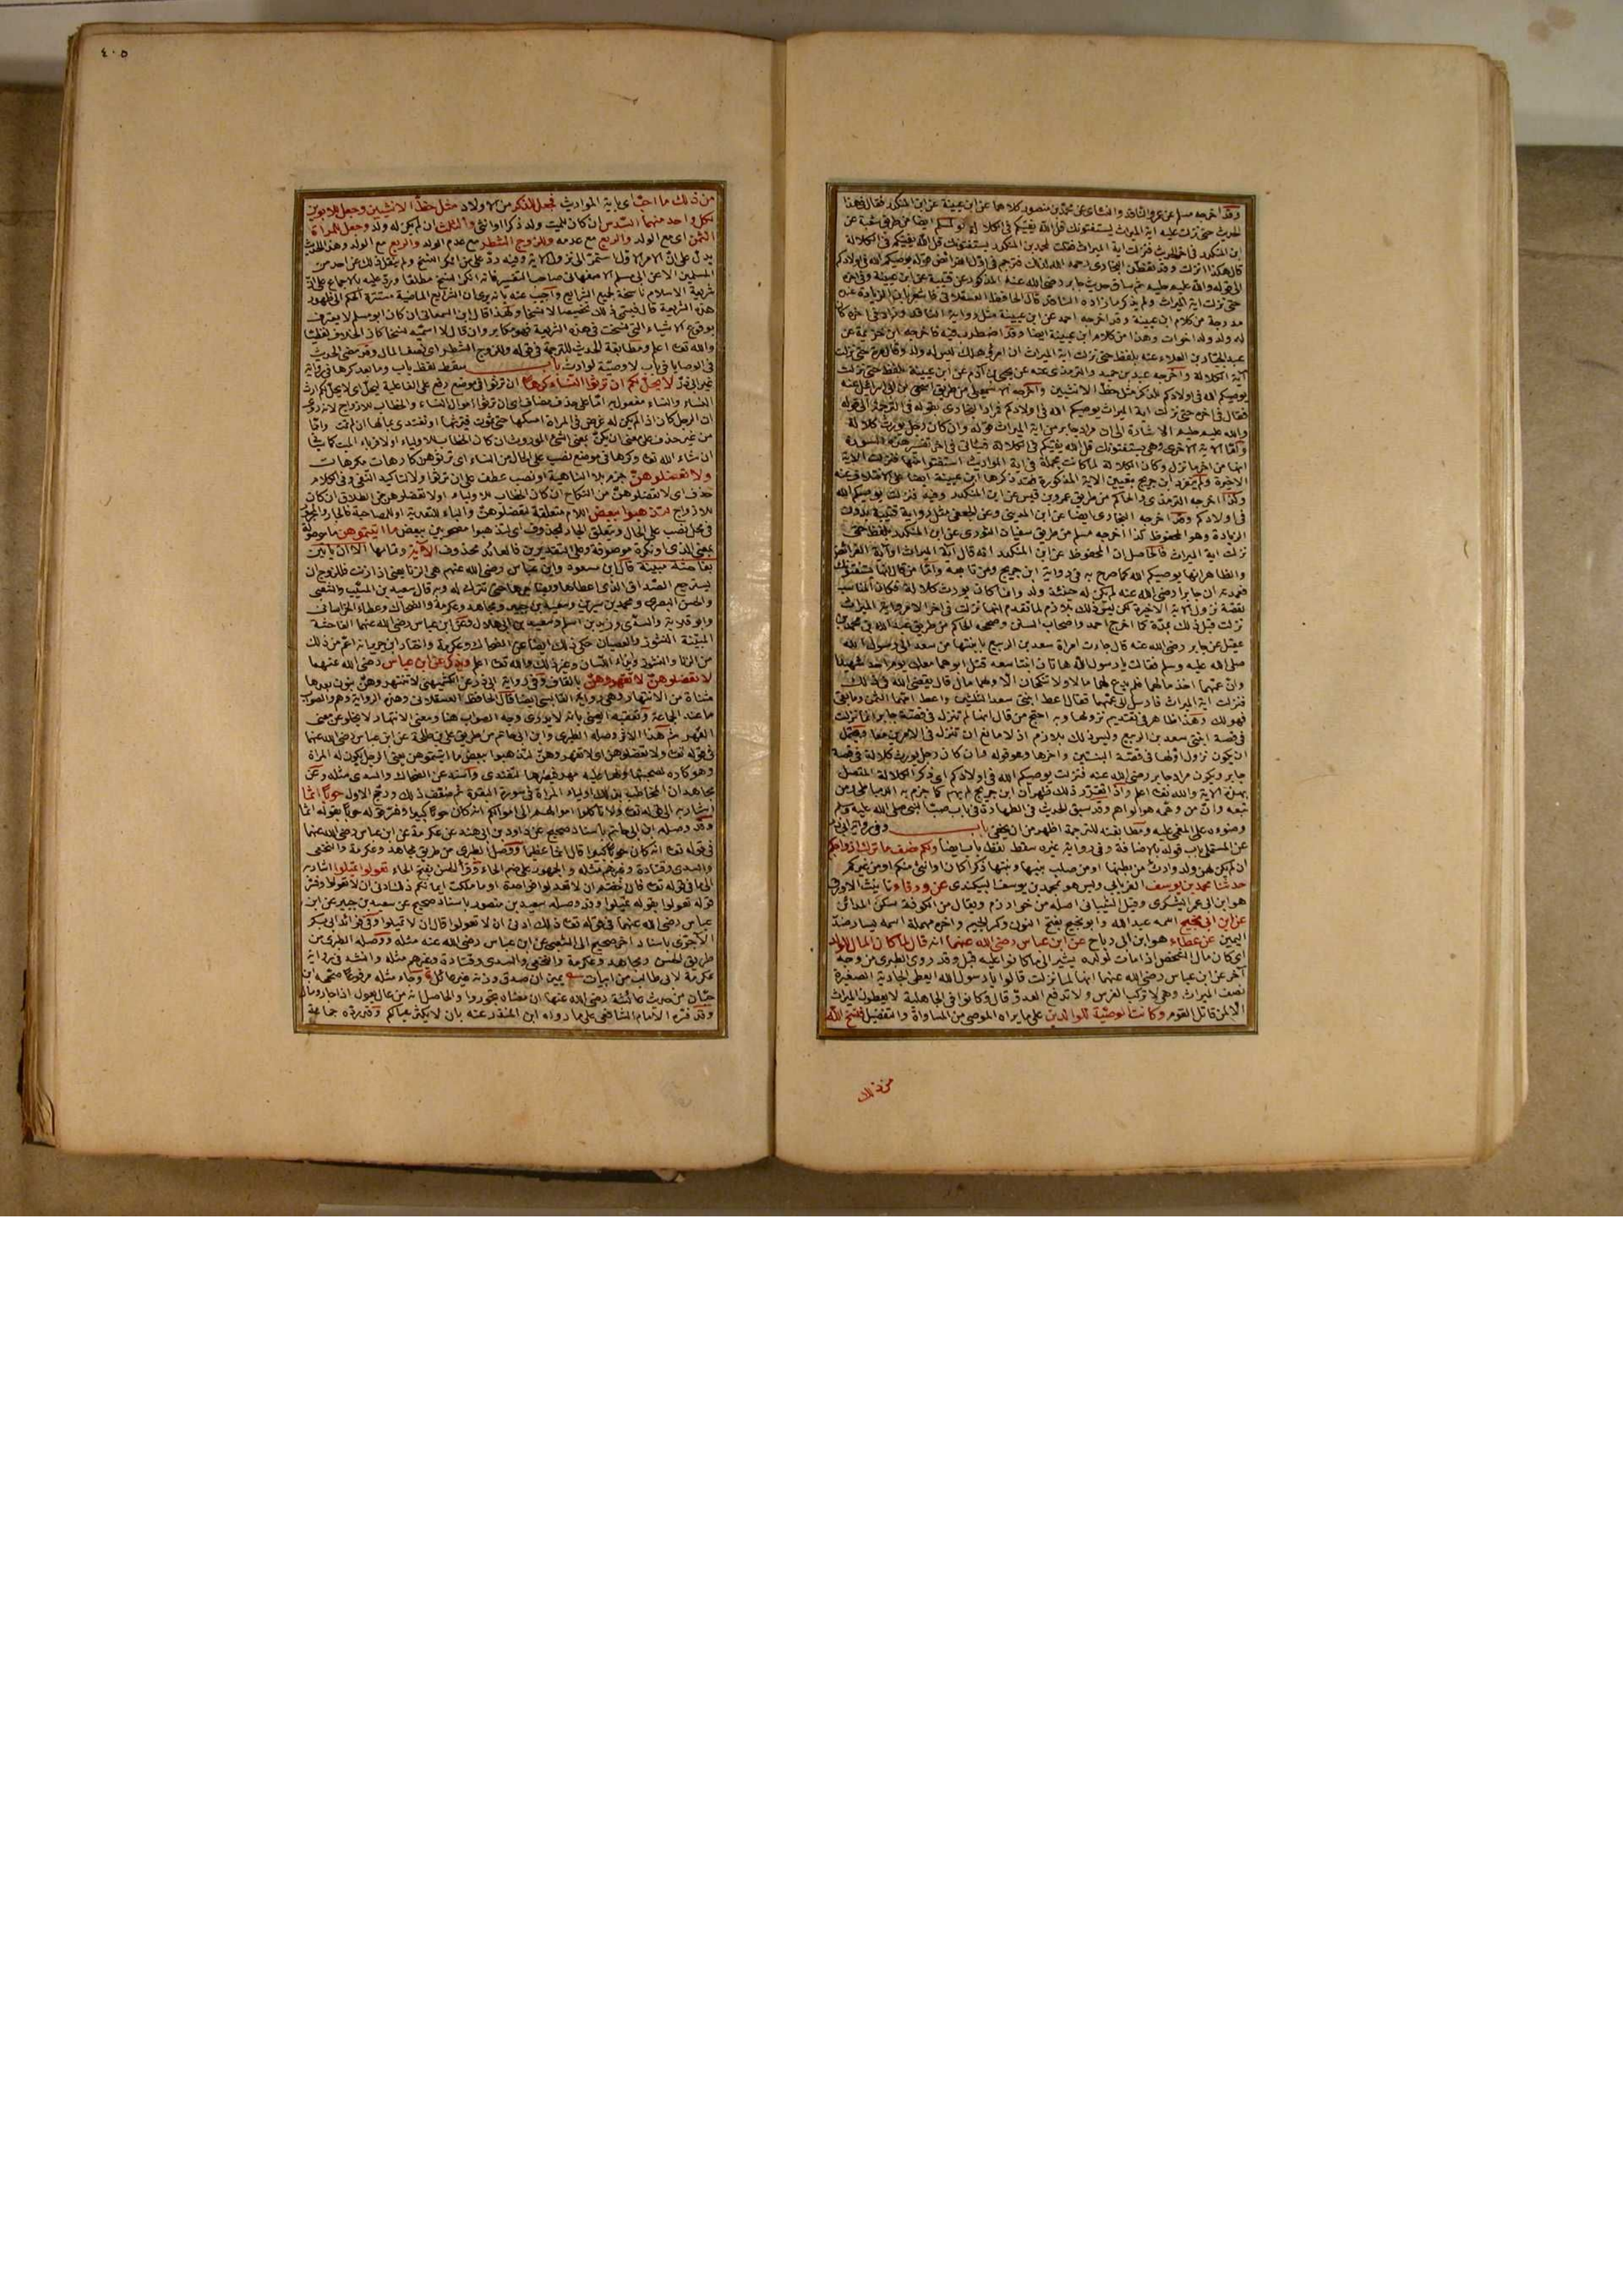 وقد اخرجه مسلم عن عمرو الناقد والنسائي عن محمد بن منصور كلاهما عن ابن عيينة عن ابن المنكدر فقال في هذا
الحديث حتى نزلت عليه اية الميراث يستفتونك قل الله يفتيكم في الكلالة ولمسلم ايضا من طريق شعبة عن
ابن المنكدر في اخر الحديث فنزلت اية الميراث فقلت لمحمد بن المنكدر يستفتونك قل الله يفتيكم في الكلالة
قال هكذا انزلت وقد تفطن البخاري رحمه الله لذلك فترجم في اول الفرائض قوله يوصيكم الله في اولادكم
الى قوله والله عليم حليم ثم ساق حديث جابر رضي الله عنه المذكور عن قتيبة عن ابن عيينة وفي اخره
حتى نزلت اية الميراث ولم يذكر ما زاده الناقد قال الحافظ العسقلاني فاشعر بان الزيادة عنده
مدرجة من كلام ابن عيينة وقد اخرجه احمد عن ابن عيينة مثل رواية الناقد وزاد في اخره كان
له ولد وله اخوات وهذا من كلام ابن عيينة ايضا وقد اضطرب فيه فاخرجه ابن خزيمة عن
عبد الجبار بن العلاء عنه بلفظ حتى نزلت اية الميراث ان امرؤ هلك ليس له ولد وقال مرة حتى نزلت
آية الكلالة واخرجه عبد بن حميد والترمذي عنه عن يحيى بن آدم عن ابن عيينة بلفظ حتى نزلت
يوصيكم الله في اولادكم للذكر مثل حظ الانثيين واخرجه الاسمعيلي من طريق اسحق بن ابي اسرائيل عنه
فقال في اخره حتى نزلت اية الميراث يوصيكم الله في اولادكم فمراد البخاري بقوله في الترجمة الى قوله
والله عليم حليم الاشارة الى ان مراد جابر من اية الميراث قوله وان كان رجل يورث كلالة
واما الاية الاخرى وهي يستفتونك قل الله يفتيكم في الكلالة فسيأتي في اخر تفسير هذه السورة
انها من اخر ما نزل وكان الكلالة لما كانت مجملة في اية المواريث استفتوا عنها فنزلت الاية
الاخيرة ولم ينفرد ابن جريج بتعيين الاية المذكورة فقد ذكرها ابن عيينة ايضا على الاختلاف عنه
وكذا اخرجه الترمذي والحاكم من طريق عمرو بن قيس عن ابن المنكدر وفيه فنزلت يوصيكم الله
في اولادكم وقد اخرجه البخاري ايضا عن ابن المديني وعن الجعفي مثل رواية قتيبة بدون
الزيادة وهو المحفوظ كذا اخرجه مسلم من طريق سفيان الثوري عن ابن المنكدر بلفظ حتى
نزلت اية الميراث فالحاصل ان المحفوظ عن ابن المنكدر انه قال آية الميراث او آية الفرائض
والظاهر انها يوصيكم الله كما صرح به في رواية ابن جريج ومن تابعه واما من قال انها يستفتونك
فعمدته ان جابرا رضي الله عنه لم يكن له حينئذ ولد وانما كان يورث كلالة فكان المناسب
لقصة نزول الاية الاخيرة لكن ليس ذلك بلازم لما تقدم انها نزلت في اخر الامر واية الميراث
نزلت قبل ذلك بمدة كما اخرج احمد واصحاب السنن وصححه الحاكم من طريق عبد الله بن محمد بن
عقيل عن جابر رضي الله عنه قال جاءت امرأة سعد بن الربيع بابنتيها من سعد الى رسول الله
صلى الله عليه وسلم فقالت يا رسول الله هاتان ابنتا سعد قتل ابوهما معك يوم احد شهيدا
وان عمهما اخذ مالهما فلم يدع لهما مالا ولا تنكحان الا ولهما مال قال يقضي الله في ذلك
فنزلت اية الميراث فارسل الى عمهما فقال اعط ابنتي سعد الثلثين واعط امهما الثمن وما بقي
فهو لك وهذا ظاهر في تقديم نزولها وبه احتج من قال انها لم تنزل في قصة جابر انما نزلت
في قصة ابنتي سعد بن الربيع وليس ذلك بلازم اذ لا مانع ان تنزل في الامرين معا فيحتمل
ان يكون نزول اولها في قصة البنتين واخرها وهو قوله وان كان رجل يورث كلالة في قصة
جابر ويكون مراد جابر رضي الله عنه فنزلت يوصيكم الله في اولادكم اي ذكر الكلالة المتصل
بهذه الاية والله تعالى اعلم واذا تقرر ذلك ظهر ان ابن جريج لم يهم كما جزم به الدمياطي ومن
تبعه وان من وهمه هو الواهم وقد سبق الحديث في الطهارة في باب صب النبي صلى الله عليه وسلم
وضوءه على المغمى عليه ومطابقته للترجمة اظهر من ان يخفى باب وفي رواية ابي ذر
عن المستملي باب قوله بالاضافة وفي رواية غيره سقط لفظ باب ايضا ولكم نصف ما ترك ازواجكم
ان لم يكن لهن ولد وارث من بطنها او من صلب بنيها او بنتها ذكرا كان او انثى منكم او من غيركم
حدثنا محمد بن يوسف الفريابي وليس هو محمد بن يوسف البيكندي عن ورقاء تأنيث الاورق
هو ابن ابي عمر اليشكري وقيل الشيباني اصله من خوارزم ويقال من الكوفة سكن المدائن
عن ابن ابي نجيح اسمه عبد الله وابو نجيح بفتح النون وكسر الجيم واخره مهملة اسمه يسار ضد
اليمين عن عطاء هو ابن ابي رباح عن ابن عباس رضي الله عنهما انه قال كان المال للولد
اي كان مال الشخص اذا مات لولده يشير الى ما كانوا عليه قبل وقد روى الطبري من وجه
آخر عن ابن عباس رضي الله عنهما انها لما نزلت قالوا يا رسول الله ايعطى الجارية الصغيرة
نصف الميراث وهي لا تركب الفرس ولا تدفع العدو قال وكانوا في الجاهلية لا يعطون الميراث
الا لمن قاتل القوم وكانت الوصية للوالدين على ما يراه الموصي من المساواة والتفضيل فنسخ الله
من ذلك
٤٠٥
من ذلك ما احب اي باية المواريث فجعل للذكر من الاولاد مثل حظ الانثيين وجعل للابوين
لكل واحد منهما السدس ان كان للميت ولد ذكرا او انثى والثلث ان لم يكن له ولد وجعل للمرأة
الثمن اي مع الولد والربع مع عدمه وللزوج الشطر مع عدم الولد والربع مع الولد وهذا الحديث
يدل على ان الامر الاول استمر الى نزول الاية وفيه رد على من انكر النسخ ولم ينقل ذلك عن احد من
المسلمين الا عن ابي مسلم الاصفهاني صاحب التفسير فانه انكر النسخ مطلقا ورد عليه بالاجماع على ان
شريعة الاسلام ناسخة لجميع الشرايع واجيب عنه بانه يرى ان الشرايع الماضية مستقرة الحكم الى ظهور
هذه الشريعة قال فيسمى ذلك تخصيصا لا نسخا ولهذا قال ابن السمعاني ان كان ابو مسلم لا يعترف
بوقوع الاشياء التي نسخت في هذه الشريعة فهو مكابر وان قال لا اسميه نسخا كان الخلاف لفظيا
والله تعالى اعلم ومطابقة الحديث للترجمة في قوله وللزوج الشطر اي نصف المال وقد مضى الحديث
في الوصايا في باب لا وصية لوارث باب سقط لفظ باب وما بعد كرها في رواية
غير ابي ذر لا يحل لكم ان ترثوا النساء كرها ان ترثوا في موضع رفع على الفاعلية ليحل اي لا يحل لكم ارث
النساء والنساء مفعول به اما على حذف مضاف اي ان ترثوا اموال النساء والخطاب للازواج لانه روي
ان الرجل كان اذا لم يكن له غرض في المرأة امسكها حتى تموت فيرثها او تفتدي بمالها ان لم تمت واما
من غير حذف على معنى ان يكن بمعنى الشيء الموروث ان كان الخطاب للاولياء او لاقرباء الميت كما سيأتي
ان شاء الله تعالى وكرها في موضع نصب على الحال من النساء اي ترثوهن كارهات او مكرهات
ولا تعضلوهن جزم بلا الناهية او نصب عطف على ان ترثوا ولا لتأكيد النفي وفي الكلام
حذف اي لا تعضلوهن من النكاح ان كان الخطاب للاولياء او لا تعضلوهن من الطلاق ان كان
للازواج لتذهبوا ببعض اللام متعلقة بتعضلوهن والباء للتعدية او للمصاحبة فالجار والمجرور
في محل نصب على الحال ويتعلق الجار بمحذوف اي لتذهبوا مصحوبين ببعض ما آتيتموهن ما موصولة
بمعنى الذي او نكرة موصوفة وعلى التقديرين فالعائد محذوف الآية وتمامها الا ان يأتين
بفاحشة مبينة قال ابن مسعود وابن عباس رضي الله عنهم هي الزنا يعني اذا زنت فللزوج ان
يسترجع الصداق الذي اعطاها ويضاجرها حتى تتركه له وبه قال سعيد بن المسيب والشعبي
والحسن البصري ومحمد بن سيرين وسعيد بن جبير ومجاهد وعكرمة والضحاك وعطاء الخراساني
وابو قلابة والسدي وزيد بن اسلم وسعيد بن ابي هلال وعن ابن عباس رضي الله عنهما الفاحشة
المبينة النشوز والعصيان حكي ذلك ايضا عن الضحاك وعكرمة واختار ابن جرير انه اعم من ذلك
من الزنا والنشوز وايذاء اللسان وغير ذلك والله تعالى اعلم ويذكر عن ابن عباس رضي الله عنهما
لا تعضلوهن لا تقهروهن بالقاف وفي رواية ابي ذر عن الكشميهني لا تنتهروهن بنون بعدها
مثناة من الانتهار وهي رواية القابسي ايضا قال الحافظ العسقلاني وهذه الرواية وهم والصواب
ما عند الجماعة وتعقبه العيني بانه لا يدرى وجه الصواب هنا ومعنى الانتهار لا يخلو عن معنى
القهر ثم هذا الاثر وصله الطبري وابن ابي حاتم من طريق علي بن طلحة عن ابن عباس رضي الله عنهما
في قوله تعالى ولا تعضلوهن اي لا تقهروهن لتذهبوا ببعض ما آتيتموهن يعني الرجل يكون له المرأة
وهو كاره لصحبتها ولها عليه مهر فيضرها لتفتدي واسند عن الضحاك والسدي مثله وعن
مجاهد ان المخاطب بذلك اولياء المرأة في سورة البقرة ثم ضعف ذلك ورجح الاول حوبا اثما
اشار به الى قوله تعالى ولا تأكلوا اموالهم الى اموالكم انه كان حوبا كبيرا وفسر قوله حوبا بقوله اثما
وقد وصله ابن ابي حاتم باسناد صحيح عن داود بن ابي هند عن عكرمة عن ابن عباس رضي الله عنهما
في قوله تعالى انه كان حوبا كبيرا قال اثما عظيما ووصل الطبري من طريق مجاهد وعكرمة والنخعي
والسدي وقتادة وغيرهم مثله والجمهور على ضم الحاء وقرأ الحسن بفتح الحاء تعولوا تميلوا اشار به
الى ما في قوله تعالى فان خفتم ان لا تعدلوا فواحدة او ما ملكت ايمانكم ذلك ادنى ان لا تعولوا وفسر
قوله تعولوا بقوله تميلوا وقد وصله سعيد بن منصور باسناد صحيح عن سعيد بن جبير عن ابن
عباس رضي الله عنهما في قوله تعالى ذلك ادنى ان لا تعولوا قال ان لا تميلوا وفي فوائد ابي بكر
الآجري باسناد آخر صحيح الى الشعبي عن ابن عباس رضي الله عنه مثله ووصله الطبري من
طريق الحسن ومجاهد وعكرمة والنخعي والسدي وقتادة وغيرهم مثله وانشد في رواية
عكرمة لابي طالب من ابيات بميزان صدق وزنه غير عائل وجاء مثله مرفوعا صححه ابن
حبان من حديث عائشة رضي الله عنها ان معناه تجوروا والحاصل انه من عال يعول اذا جار ومال
وقد فسره الامام الشافعي على ما رواه ابن المنذر عنه بان لا يكثر عيالكم وقد رده جماعة